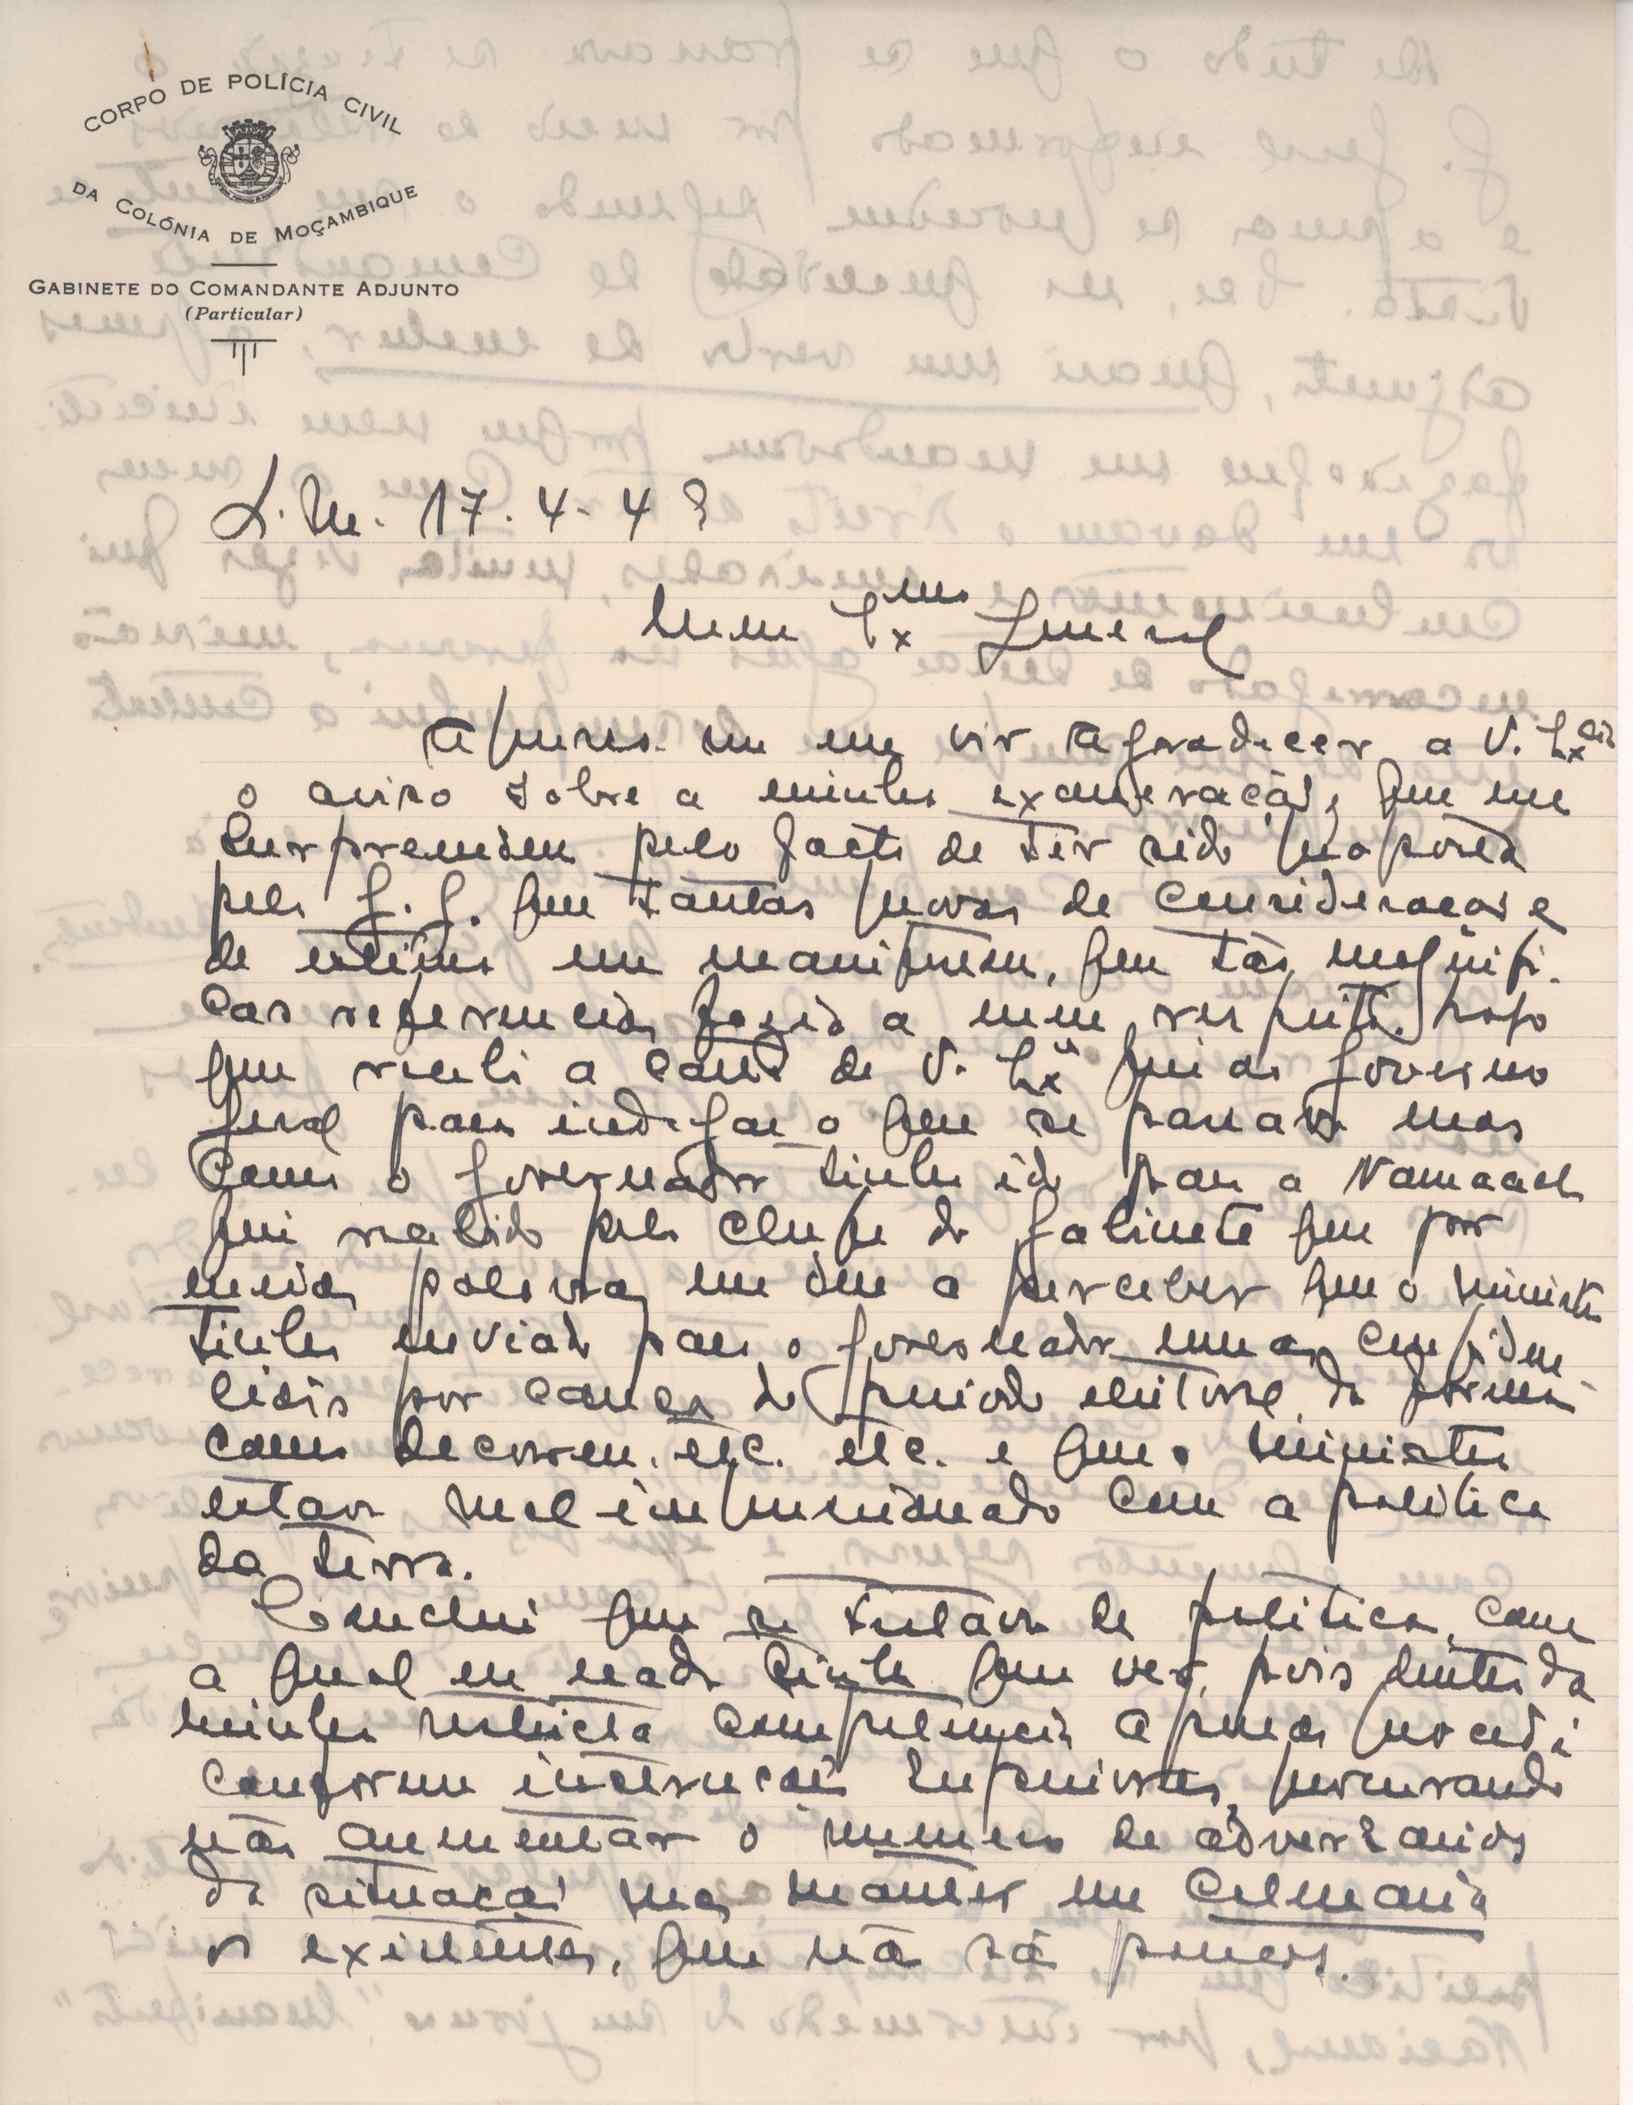 CORPO DE POLÍCIA CIVIL
DA COLÓNIA DE MOÇAMBIQUE
GABINETE DO COMANDANTE ADJUNTO
(Particular)
L. M. 17. 4. 4
Meu Exmo General
Apresso-me em vir agradecer a V. Excia
o aviso sobre a minha exoneração, que me
surpreendeu pelo facto de ter sido proposta
pelo G. G. que tantas provas de consideração e
de estima me manifestou, que tão magnifi-
cas referencias fazia a meu respeito. Logo
que recebi a carta de V. Exa fui ao Governo
Geral para indagar o que se passava mas
como o Governador tinha ido para a Namaacha
fui recebido pelo chefe do gabinete que por
meias palavras me deu a perceber que o Ministro
tinha enviado para o governador umas confiden
ciais por causa do periodo eleitoral, da forma
como decorreu, etc. etc. e que o Ministro
estava mal impressionado com a politica
da terra.
Conclui que se tratava de politica, com
a qual eu nada tinha que ver, pois dentro da
minha restricta competencia apenas procedi
conforme instruções superiores, procurando
não aumentar o numero de adversarios
da situação mas manter em calmaria
os existentes, que não são poucos.